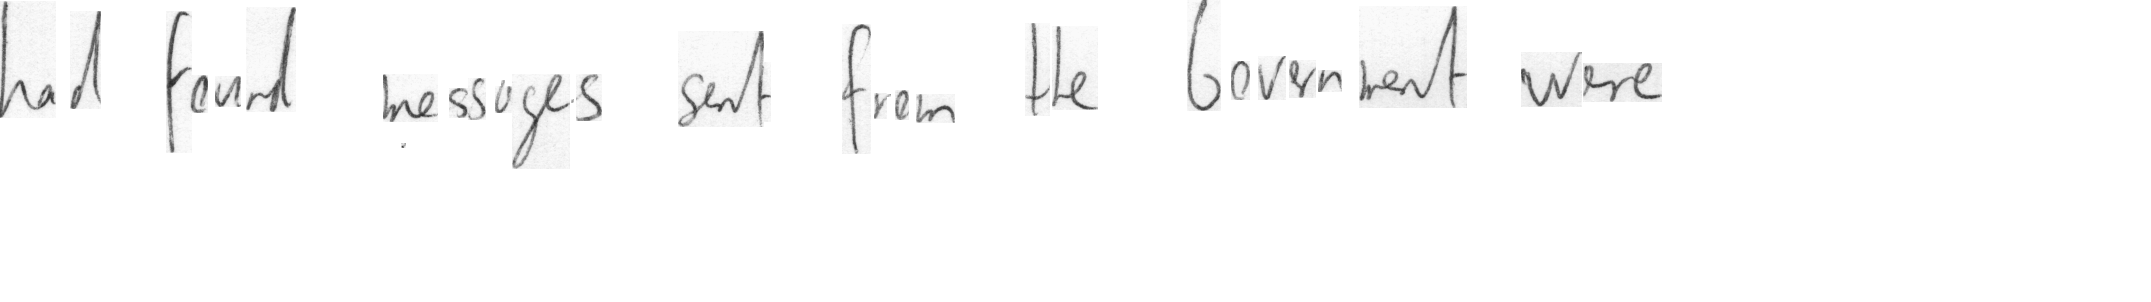 had found messages sent from the Government were